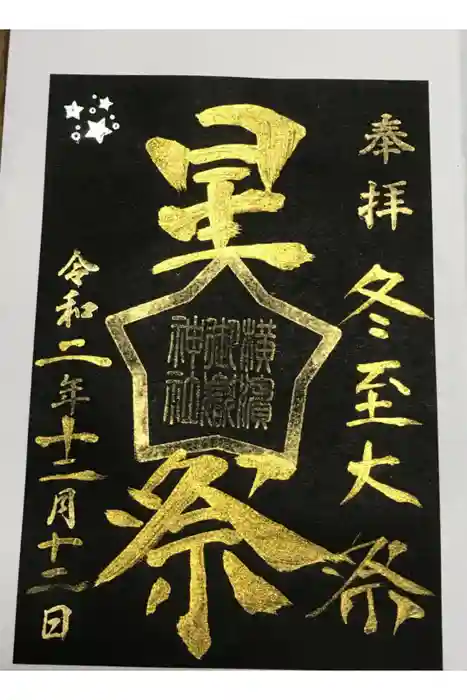 奉拝
冬至大祭
星祭
横濱
御嶽
神社
令和二年十二月十二日